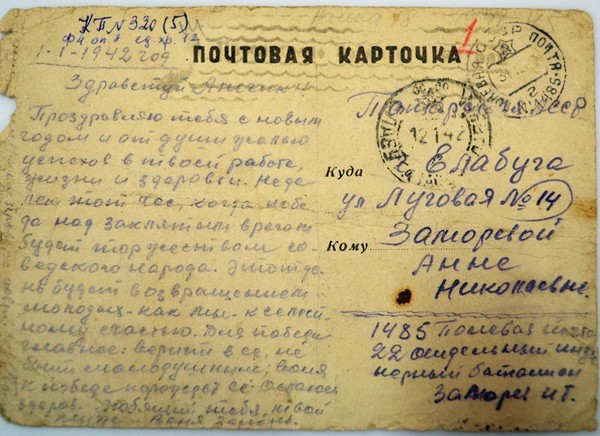 КПN320(5)
1-1-1942 год
ПОЧТОВАЯ КАРТОЧКА
1
Здравствуй Анечка!
Поздравляю тебя с новым
годом и от души желаю
успехов в твоей работе,
жизни и здоровья. Неда
лек тот час, когда побе
да над заклятым врагом
будет торжеством со
ведского народа. Этот де
нь будет возвращением
молодых - как мы - к семей
ному счастью. Для победы
главное: верить в ее, не
быть малодушным, воля
к победе порождает ее. Остаюсь
здоров. Любящий тебя, твой
Ваня Заморев.
ПОЧТА
12 1 42
Татарская АССР
Куда
Елабуга
ул Луговая №14
Кому
Заморевой
Анне
Николаевне
1485 Полевая почта
22 отдельный инже
нерный баталион
Заморев И.Т.